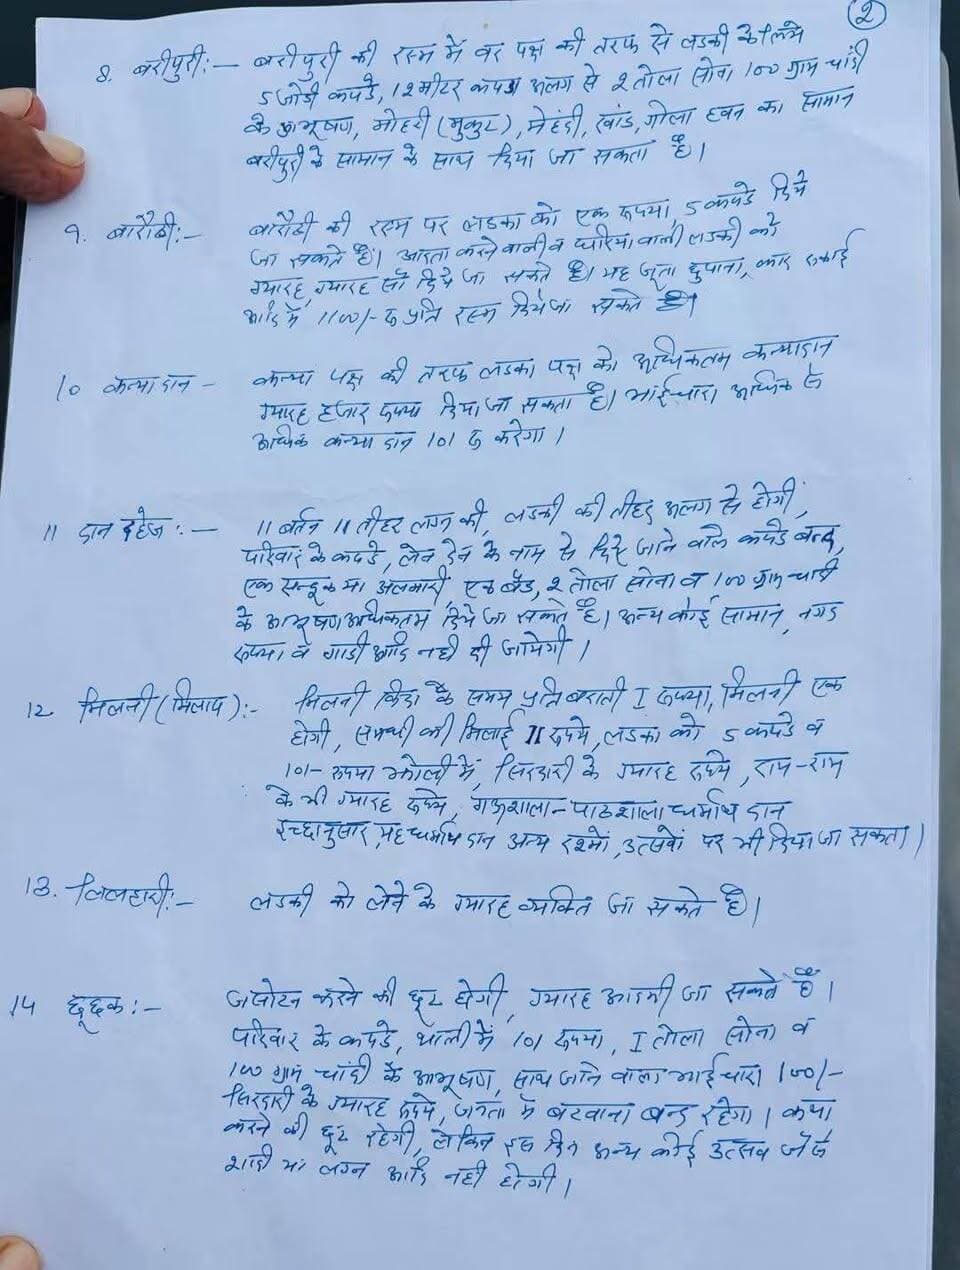 2
8. बरीपुरी:- बरीपुरी की रस्म में वर पक्ष की तरफ से लडकी के लिये
5 जोडी कपडे, 12 मीटर कपडा अलग से 2 तोला सोना 100 ग्राम चांदी
के आभूषण, मोहरी (मुकुट), मेहंदी, खांड, गोला हवन का सामान
बरीपुरी के सामान के साथ दिया जा सकता है।
9. बारौठी:- बारौठी की रस्म पर लडका को एक रूपया, 5 कपडे दिये
जा सकते है। आरता करने वाली व वाली लडकी को
ग्यारह, ग्यारह सौ दिये जा सकते है। यह जूता छुपाना, कार रुकाई
आदि में 1100/- रु प्रति रस्म दिये जा सकते है।
10 कन्यादान - कन्या पक्ष की तरफ लडका पक्ष को अधिकतम कन्यादान
ग्यारह हजार रूपया दिया जा सकता है। भाईचारा अधिक से
अधिक कन्या दान 101 रु करेगा।
11 दान दहेज:- 11 बर्तन 11 तीहर लग्न की, लडकी की तीहर अलग से होगी,
परिवार के कपडे, लेन देन के नाम से दिये जाने वाले कपडे बन्द,
एक सन्दूक या अलमारी, एक बैड, 2 तोला सोना व 100 ग्राम चांदी
के आभूषण अधिकतम दिये जा सकते है। अन्य कोई सामान, नगद
रूपया व गाडी आदि नही दी जायेगी।
12 मिलनी (मिलाप):- मिलनी विदा के समय प्रति बराती 1 रूपया, मिलनी एक
होगी, समधी की मिलाई 11 रूपये, लडका को 5 कपडे व
101- रूपया झोली में, सिरदारी के ग्यारह रूपये, राम-राम
के भी ग्यारह रूपये, गऊशाला-पाठशाला धर्मार्थ दान
इच्छानुसार, यह धर्मार्थ दान अन्य रश्मो, उत्सवों पर भी दिया जा सकता।
13. लिलहारी:- लडकी को लेने के ग्यारह व्यक्ति जा सकते है।
14 छूछक:- जसोटन करने की छूट होगी, ग्यारह आदमी जा सकते है।
परिवार के कपडे, थाली में 101 रूपया, 1 तोला सोना व
100 ग्राम चांदी के आभूषण, साथ जाने वाला भाईचारा 100/-
सिरदारी के ग्यारह रूपये, जनता में बटवाना बन्द रहेगा। कथा
करने की छूट रहेगी, लेकिन इस दिन अन्य कोई उत्सव जैसे
शादी या लग्न आदि नही होगी।